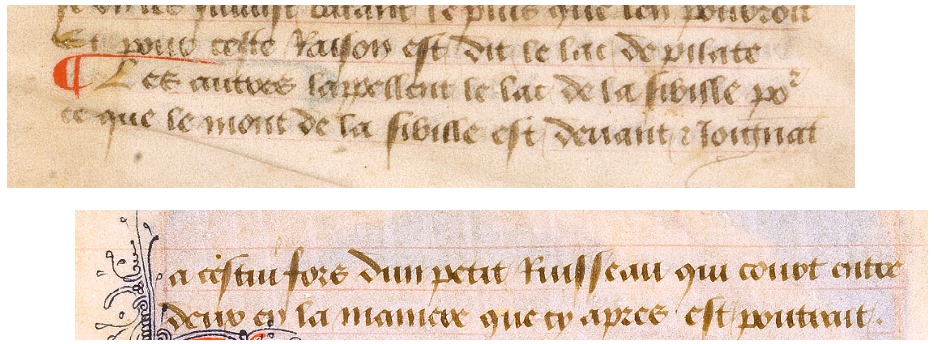 durant le plus que len pouvoit
Et pour celle Raison est dit le lac de pilate
Les autres lappellent le lac de la sibille po^r
ce que le mont de la sibille est devant 7 Joignat
a cestui fors dun petit Ruisseau qui court entre
deux en la maniere que cy apres est pourtrait .